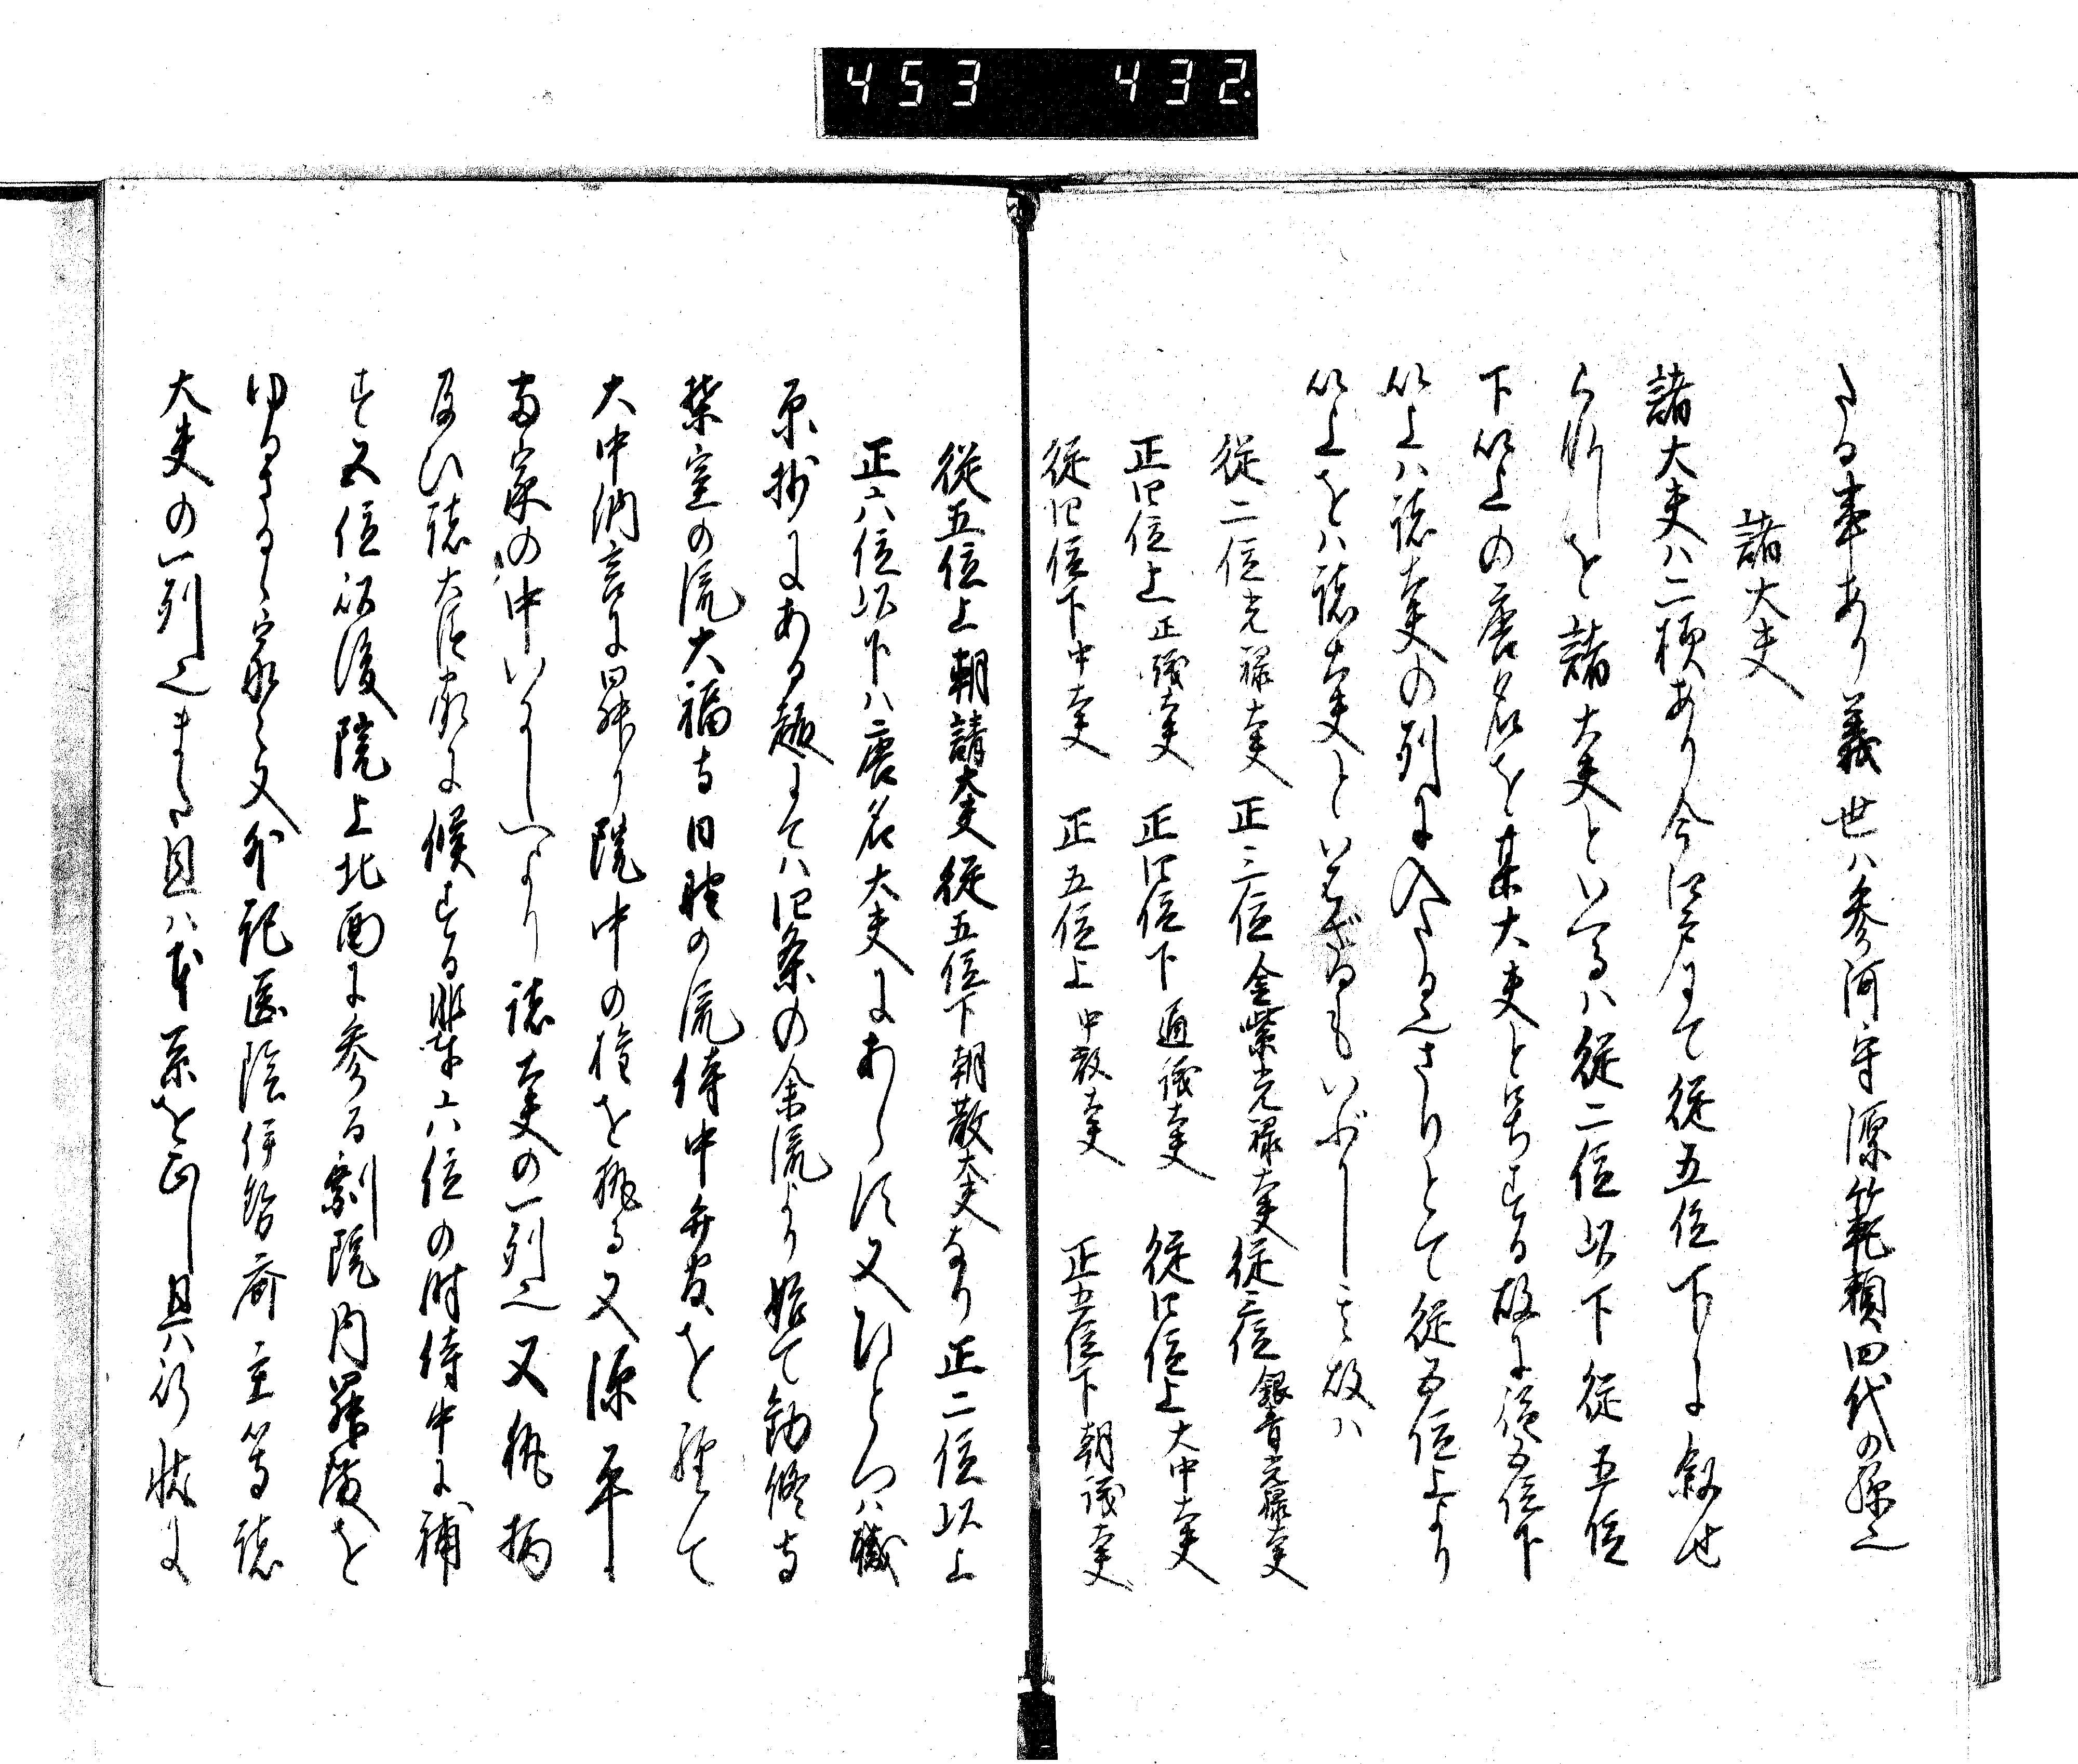 453 432.
たる事あり義世ハ参河守源範頼四代の孫也
諸大夫
諸大夫ハ二種あり今江戸にて従五位下に叙せ
られしを諸大夫といへるハ従二位以下従五位
下以上の唐名を某大夫と号する故に従五位下
以上ハ諸大夫の列に入たる也さりとて従五位上より
以上をハ諸大夫といはざるもいぶかし其故ハ
従二位光禄大夫 正三位金紫光禄大夫 従三位銀青光禄大夫
正四位上正議大夫 正四位下通議大夫 従四位上大中大夫
従四位下中大夫 正五位上中散大夫 正五位下朝議大夫
従五位上朝請大夫従五位下朝散大夫なり正二位以上
正六位以下ハ唐名大夫にあらす又ひとつハ職
原抄にある趣にてハ四条の余流より始て勧修寺
葉室の流大福寺日野の流侍中弁官を経て
大中納言に昇り院中の権を執る又源平
両家の中いにしへより諸大夫の一列也又執柄
及ひ諸大臣家に候する輩六位の時侍中に補
す五位以後院上北面に参る劇院内昇殿を
ゆるさるゝ家々又外記医陰伊勢斎主等諸
大夫の一列也また且ハ本系を正し且ハ行状に